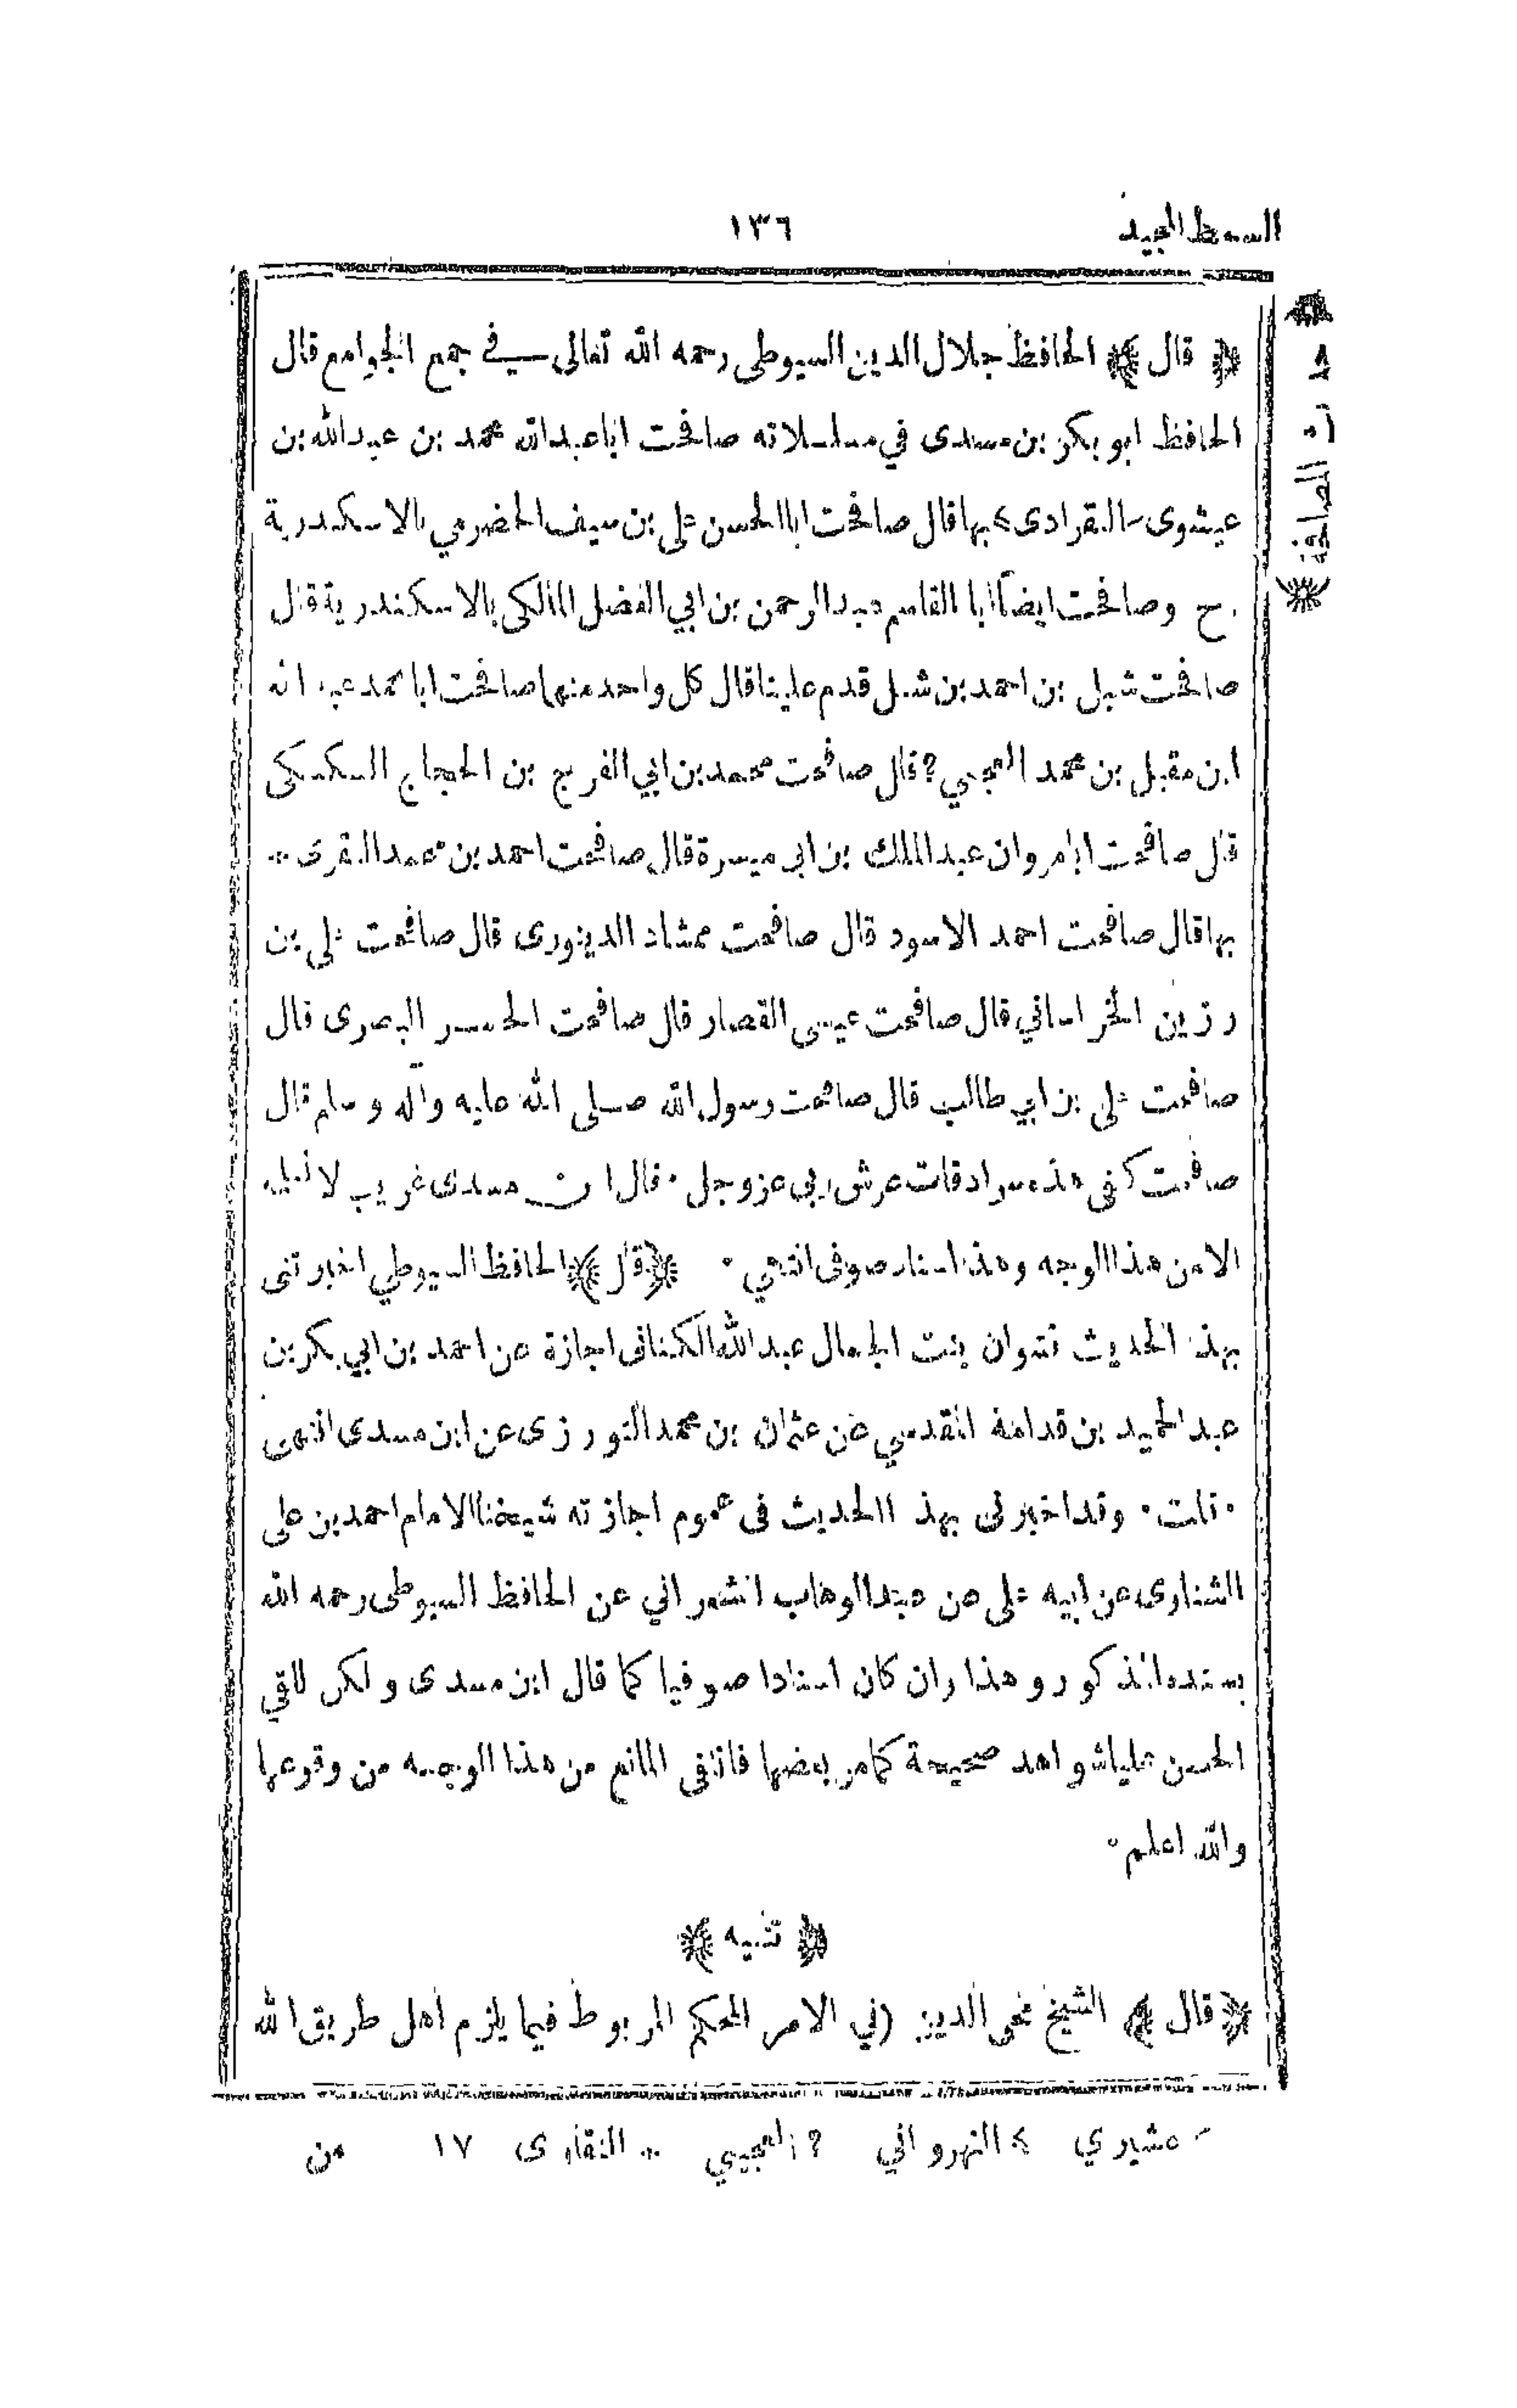 السمط المجيد
١٣٦
﴿ قال ﴾ الحافظ جلال الدين السيوطى رحمه الله تعالى في جمع الجوامع قال
الحافظ ابو بكر بن مسدى في مسلسلاته صافحت ابا عبدالله محمد بن عبدالله بن
عيشوى النقرادى بها قال صافحت ابا الحسن على بن سيف الحضرمي بالاسكندرية
ح وصافحت ايضاً ابا القاسم عبدالرحمن بن ابي الفضل المالكى بالاسكندرية قال
صافحت شبل بن احمد بن شبل قدم علينا قال كل واحد منهما صافحت ابا محمد عبد الله
ابن مقبل بن محمد العجبي ? قال صافحت محمد بن ابي الفرج بن الحجاج السكسكى
قال صافحت ابا مروان عبد الملك بن ابي ميسرة قال صافحت احمد بن محمد النقرى
بها قال صافحت احمد الاسود قال صافحت ممشاد الدينورى قال صافحت على بن
رزين الخراسانى قال صافحت عيسى القصار قال صافحت الحسن البصرى قال
صافحت على بن ابي طالب قال صافحت رسول الله صلى الله عليه وآله وسلم قال
صافحت كفى هذه سرادقات عرش ربى عزوجل · قال ابن مسدى غريب لا نعلمه
الا من هذا الوجه وهذا اسناد صوفى انتهي · ﴿ قال ﴾ الحافظ السيوطي اخبرتنى
بهذا الحديث نشوان بنت الجمال عبدالله الكنانى اجازة عن احمد بن ابي بكر بن
عبدالحميد بن قدامة المقدسي عن عثمان بن محمد التورزى عن ابن مسدى انتهى
· قلت · وقد اخبرنى بهذا الحديث فى عموم اجازته شيخنا الامام احمد بن على
الشناوى عن ابيه على عن عبدالوهاب الشعرانى عن الحافظ السيوطى رحمه الله
بسنده المذكور وهذا وان كان اسنادا صوفيا كما قال ابن مسدى ولكن للقي
الحسن عليا شواهد صحيحة كما مر بعضها فانتفى المانع من هذا الوجه من وقوعها
والله اعلم ·
﴿ تنبيه ﴾
﴿ قال ﴾ الشيخ محى الدين (في الامر المحكم المربوط فيما يلزم اهل طريق الله
عشيري النهرواني ? العجيبي النقارى ١٧ من
المصافحة